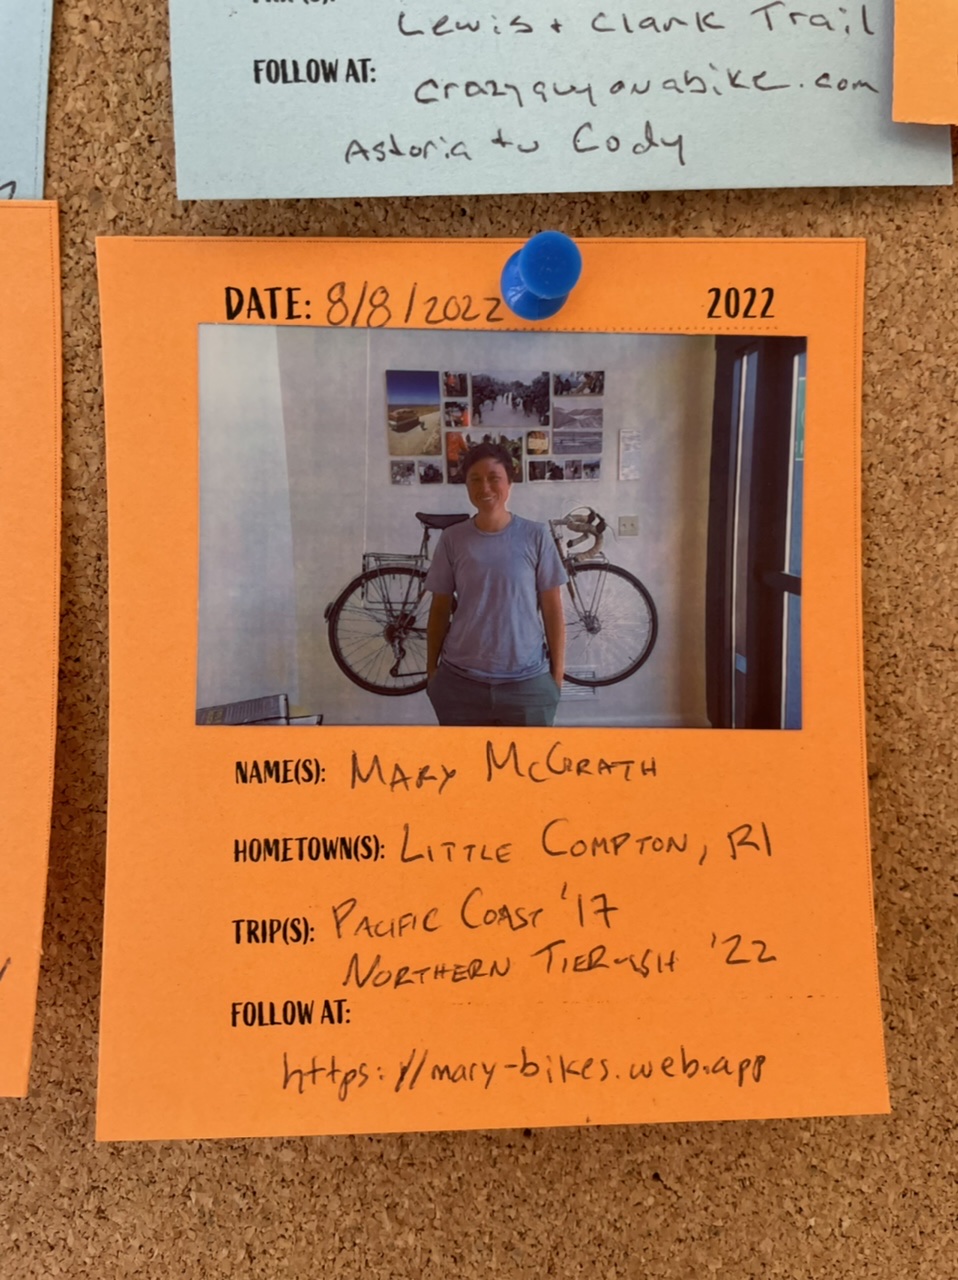 Lewis + Clark Trail
FOLLOW AT: crazyguyonabike.com
Astoria to Cody
DATE: 8/8/2022 2022
NAME(S): MARY MCGRATH
HOMETOWN(S): LITTLE COMPTON, RI
TRIP(S): PACIFIC COAST '17
NORTHERN TIER-ISH '22
FOLLOW AT:
https://mary-bikes.web.app